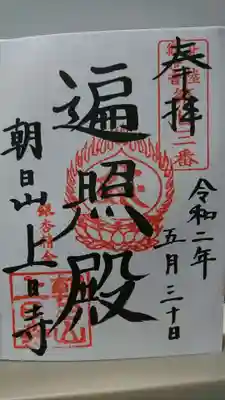 奉拝
令和二年
五月三十日
遍照殿
朝日山上日寺